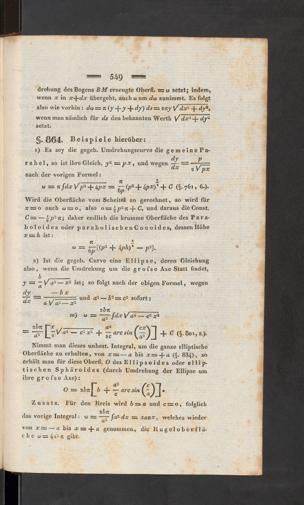 549
drehung des Bogens BM erzeugte Oberfl. = ω setzt; indem,
wenn x in x+dx übergeht, auch ω um dω zunimmt. Es folgt
also wie vorhin: dω = π(y+y+dy)ds = 2πy √dx²+dy²,
wenn man nämlich für ds den bekannten Werth √dx²+dy²
setzt.
§. 864. Beispiele hierüber:
1) Es sey die gegeb. Umdrehungscurve die gemeine Pa-
rabel, so ist ihre Gleich. y² = px, und wegen dy/dx = p/(2√px)
nach der vorigen Formel:
ω = π∫dx√p²+4px = π/6p (p²+4px)^(3/2) + C (§. 761, 6.).
Wird die Oberfläche vom Scheitel an gerechnet, so wird für
x=0 auch ω=0, also 0 = ⅙p²π + C, und daraus die Const.
C = −⅙p²π; daher endlich die krumme Oberfläche des Para-
boloides oder parabolischen Conoides, dessen Höhe
x=h ist:
ω = π/6p [(p²+4ph)^(3/2) − p³].
2) Ist die gegeb. Curve eine Ellipse, deren Gleichung
also, wenn die Umdrehung um die grofse Axe Statt findet,
y = b/a √a²−x² ist; so folgt nach der obigen Formel, wegen
dy/dx = −bx/(a√a²−x²) und a²−b²=c² sofort:
m) ω = 2bπ/a² ∫dx√a⁴−c²x²
= 2bπ/a² [x/2 √a⁴−c²x² + a⁴/2c arc sin (cx/a²)] + C (§. 801, 2.).
Nimmt man dieses unbest. Integral, um die ganze elliptische
Oberfläche zu erhalten, von x=−a bis x=+a (§. 834), so
erhält man für diese Oberfl. O des Ellipsoides oder ellip-
tischen Sphäroides (durch Umdrehung der Ellipse um
ihre grofse Axe):
O = 2bπ [b + a²/c arc sin (c/a)].
Zusatz. Für den Kreis wird b=a und c=0, folglich
das vorige Integral: ω = 2bπ/a² ∫a²dx = 2aπx, welches wieder
von x=−a bis x=+a genommen, die Kugeloberflä-
che ω = 4a²π gibt.